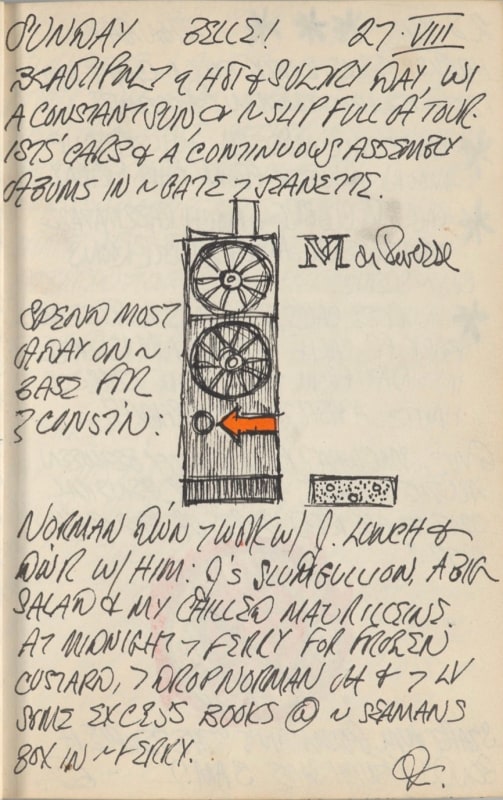 SUNDAY BELLE! 27·VIII
BEAUTIFUL, A HOT & SULTRY DAY, W/
A CONSTANT SUN, & ~ SLIP FULL OF TOUR-
ISTS' CARS & A CONTINUOUS ASSEMBLY
OF BUMS IN ~ GATE > JEANETTE.
M or Reverse
SPEND MOST
OF DAY ON ~
BASE FOR
CONSTN:
NORMAN DOWN > WORK W/ J. LUNCH &
DIN'R W/ HIM: J'S SLUMGULLION, A BIG
SALAD & MY CHILLED MAURICEINE.
AT MIDNIGHT > FERRY FOR FROZEN
CUSTARD, > DROP NORMAN OFF & > LV
SOME EXCESS BOOKS @ ~ SEAMANS
BOX IN ~ FERRY.